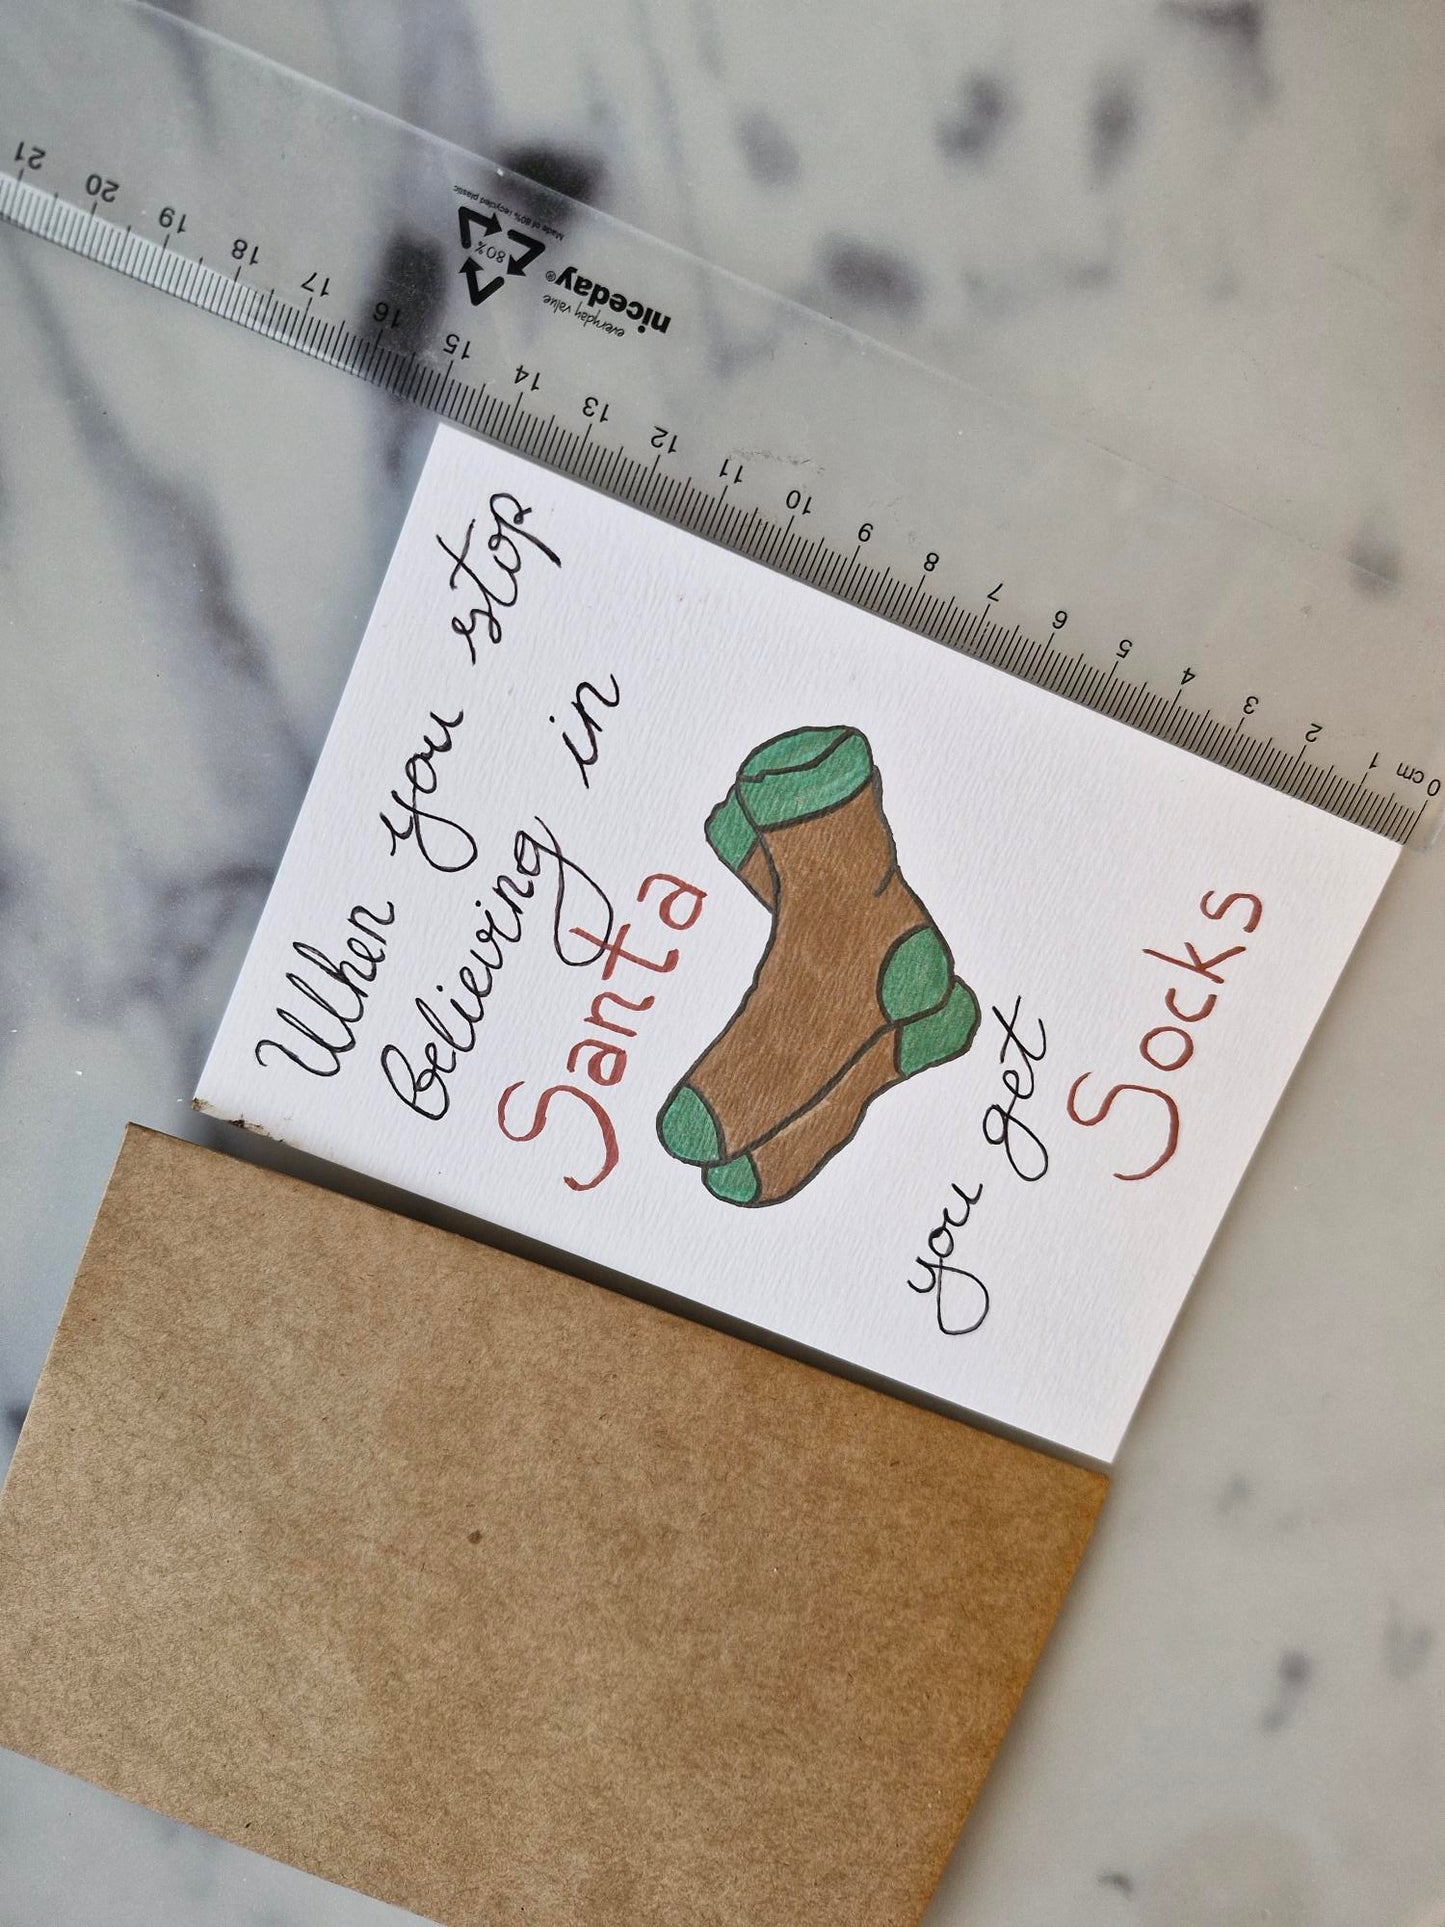 When you stop
believing in
Santa
you get
Socks
niceday®
everyday value
80%
Made of 80% recycled plastic
0 cm 1 2 3 4 5 6 7 8 9 10 11 12 13 14 15 16 17 18 19 20 21